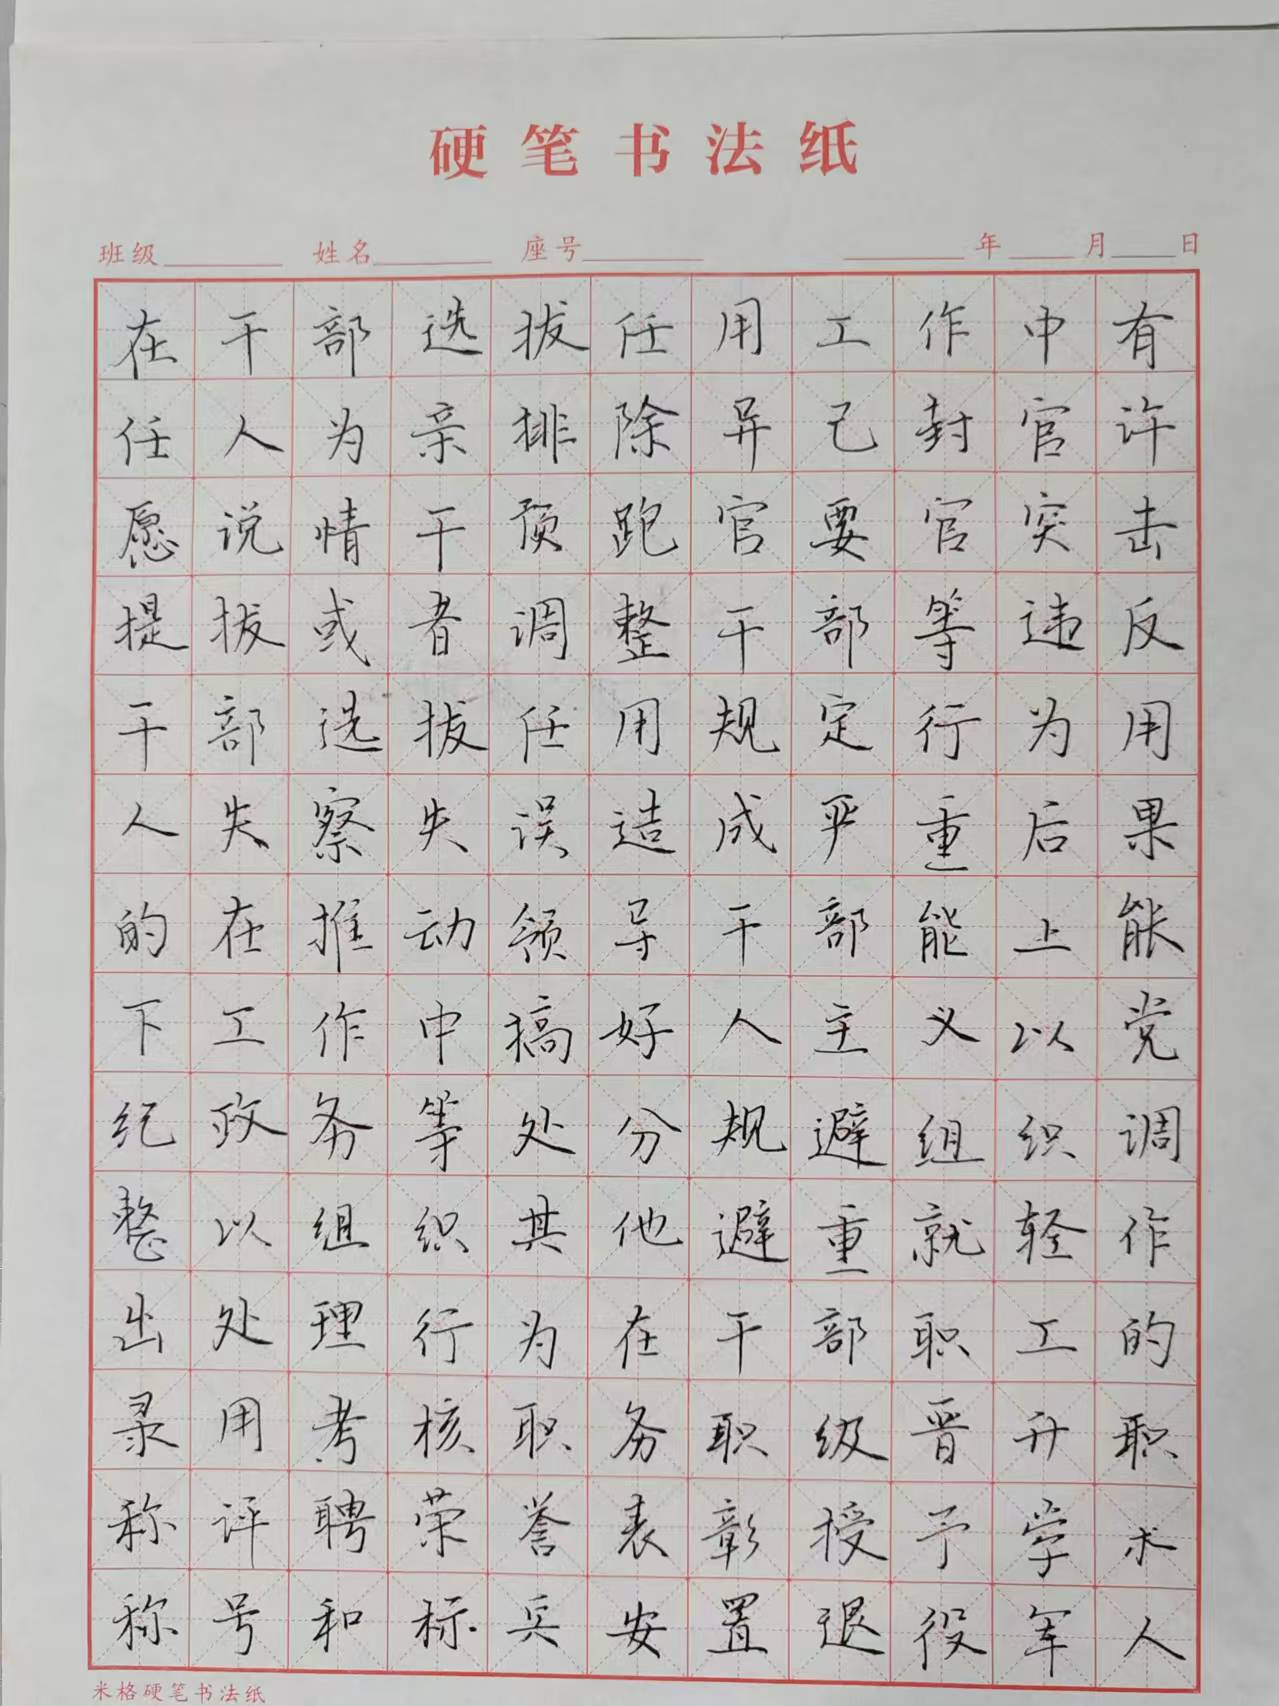 硬笔书法纸
班级 姓名 座号 年 月 日
在干部选拔任用工作中有
任人为亲排除异己封官许
愿说情干预跑官要官突击
提拔或者调整干部等违反
干部选拔任用规定行为用
人失察失误造成严重后果
的在推动领导干部能上能
下工作中搞好人主义以党
纪政务等处分规避组织调
整以组织其他避重就轻作
出处理行为在干部职工的
录用考核职务职级晋升职
称评聘荣誉表彰授予学术
称号和标兵安置退役军人
米格硬笔书法纸